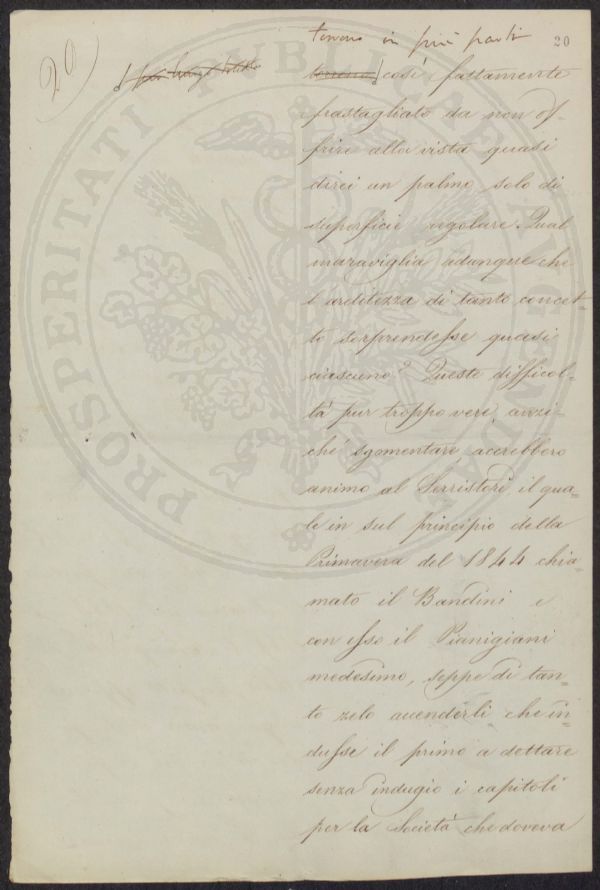 20)
20
terreno in più parti
terreno così fattamente
frastagliato da non of-
frire alla vista quasi
direi un palmo solo di
superficie regolare. Qual
maraviglia adunque che
l'arditezza di tanto concet-
to sorprendesse quasi
ciascuno? Queste difficol-
tà pur troppo vere, anzi-
ché sgomentare accrebbero
animo al Serristori, il qua-
le in sul principio della
Primavera del 1844 chia-
mato il Bandini e
con esso il Pianigiani
medesimo, seppe di tan-
to zelo accenderli che in-
dusse il primo a dettare
senza indugio i capitoli
per la Società che doveva
PROSPERITATI PUBLICAE AUGENDAE